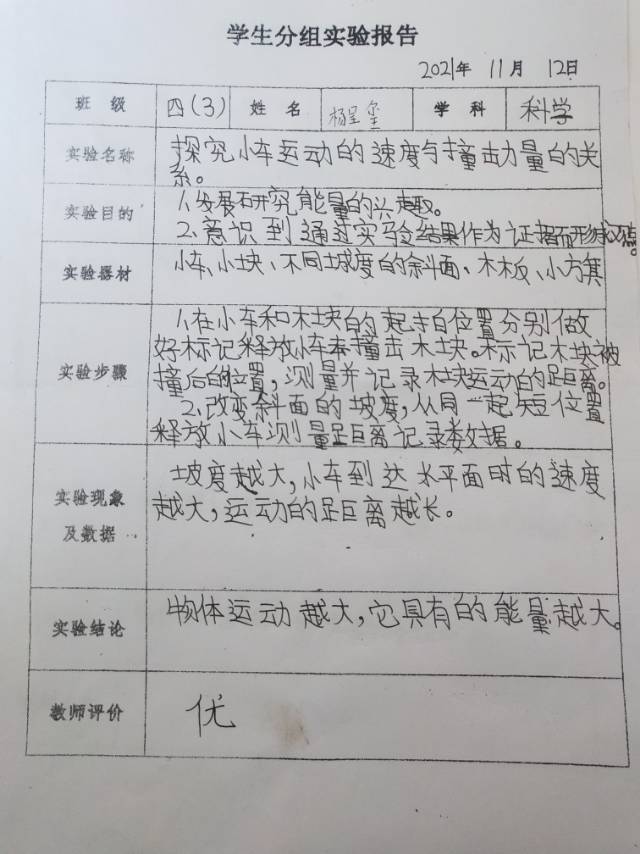 学生分组实验报告
2021年 11月 12日
班级 四(3) 姓名 杨呈玺 学科 科学
实验名称 探究小车运动的速度与撞击力量的关
系。
实验目的 1、发展研究能量的兴趣。
2、意识到通过实验结果作为证据而形成观点。
实验器材 小车、小块、不同坡度的斜面、木板、小方集
实验步骤 1、在小车和木块的起始位置分别做
好标记释放小车撞击木块。标记木块被
撞后的位置,测量并记录木块运动的距离。
2、改变斜面的坡度,从同一起短位置
释放小车测量距离记录数据。
实验现象
及数据
坡度越大,小车到达水平面时的速度
越大,运动的距离越长。
实验结论 物体运动越大,它具有的能量越大。
教师评价 优